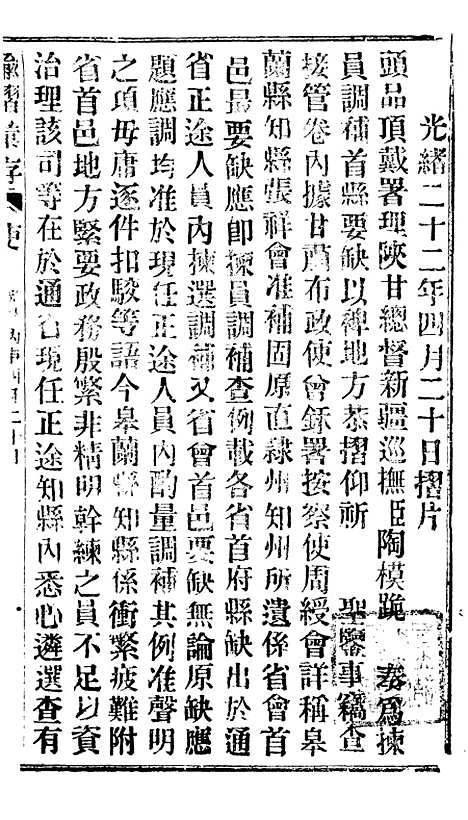 光緒二十二年四月二十日摺片
頭品頂戴署理陝甘總督新疆巡撫臣陶模跪 奏爲揀
員調補首縣要缺以裨地方恭摺仰祈 聖鑒事竊查
接管卷內據甘肅布政使曾鉌署按察使周綬會詳稱皋
蘭縣知縣張祥會准補固原直隸州知州所遺係省會首
邑最要缺應即揀員調補查例載各省首府縣缺出於通
省正途人員內揀選調補又省會首邑要缺無論原缺應
題應調均准於現任正途人員內酌量調補其例准聲明
之項毋庸逐件扣駁等語今皋蘭縣知縣係衝繁疲難附
省首邑地方緊要政務殷繁非精明幹練之員不足以資
治理該司等在於通省現任正途知縣內悉心遴選查有
諭摺彙存